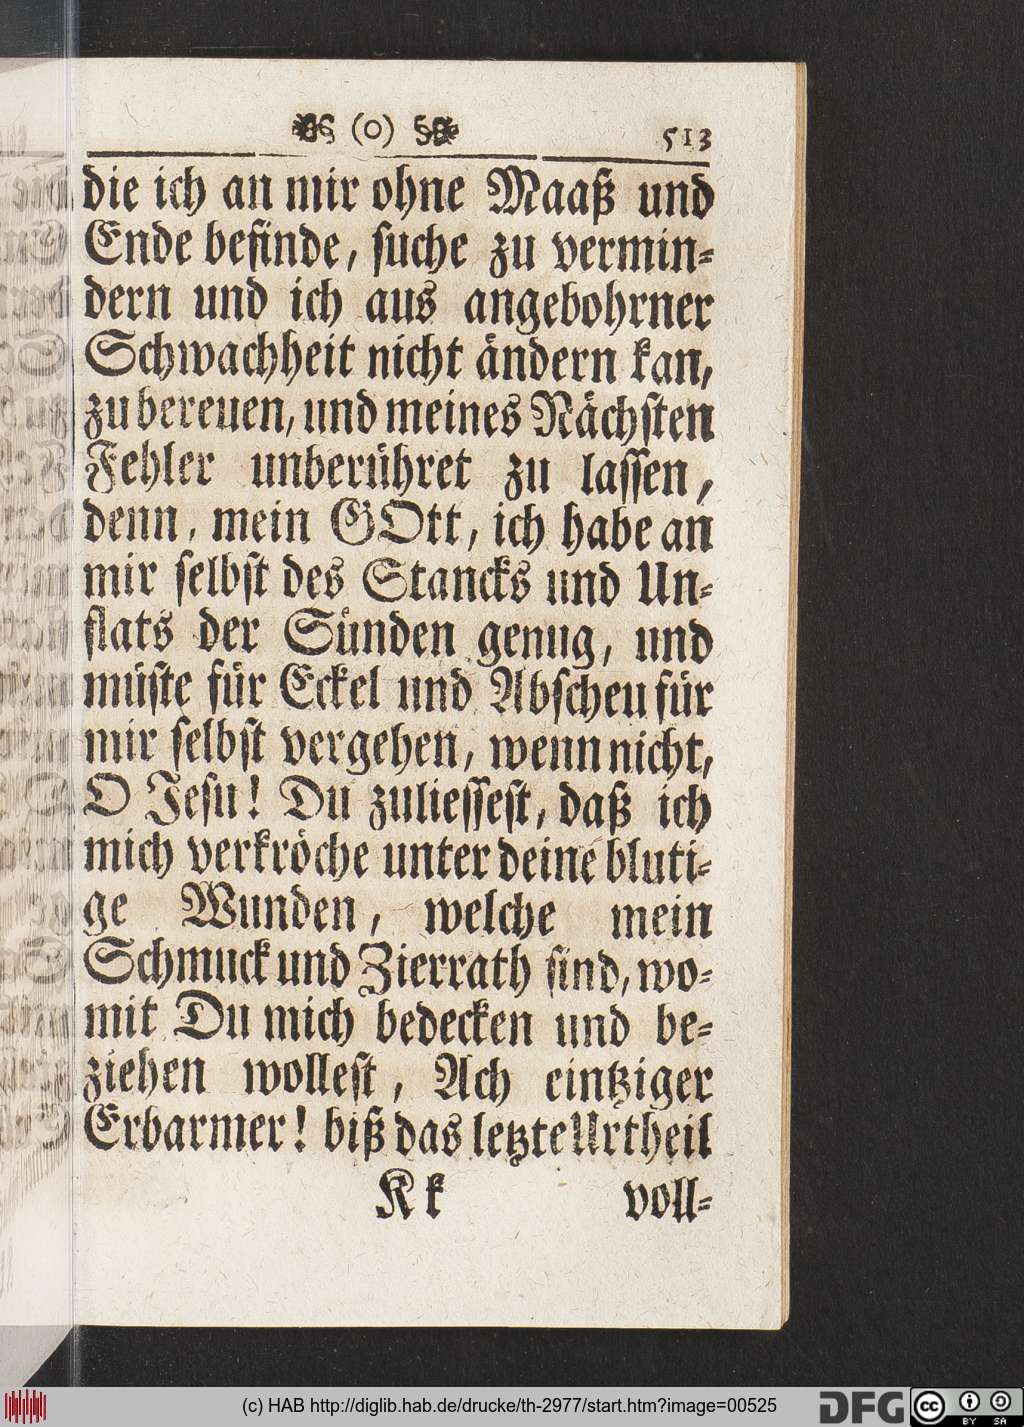 (o) 513
die ich an mir ohne Maaß und
Ende befinde, suche zu vermin-
dern und ich aus angebohrner
Schwachheit nicht ändern kan,
zu bereuen, und meines Nächsten
Fehler unberühret zu lassen,
denn, mein GOtt, ich habe an
mir selbst des Stancks und Un-
flats der Sünden genug, und
müste für Eckel und Abscheu für
mir selbst vergehen, wenn nicht,
O Jesu! Du zuliessest, daß ich
mich verkröche unter deine bluti-
ge Wunden, welche mein
Schmuck und Zierrath sind, wo-
mit Du mich bedecken und be-
ziehen wollest, Ach eintziger
Erbarmer! biß das letzte Urtheil
Kk voll-
(c) HAB http://diglib.hab.de/drucke/th-2977/start.htm?image=00525
DFG
cc BY SA